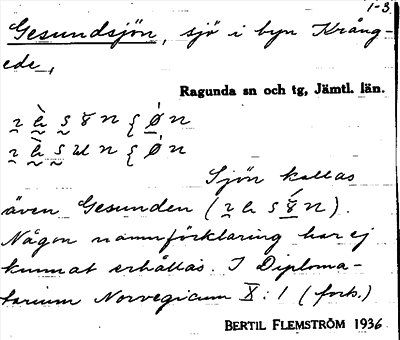 1-3
Gesundsjön, sjö i byn Krång-
ede,
Ragunda sn och tg, Jämtl. län.
Sjön kallas
även Gesunden
Någon namnförklaring har ej
kunnat erhållas. I Diploma-
tarium Norvegicum X:1 (forts.)
BERTIL FLEMSTRÖM 1936